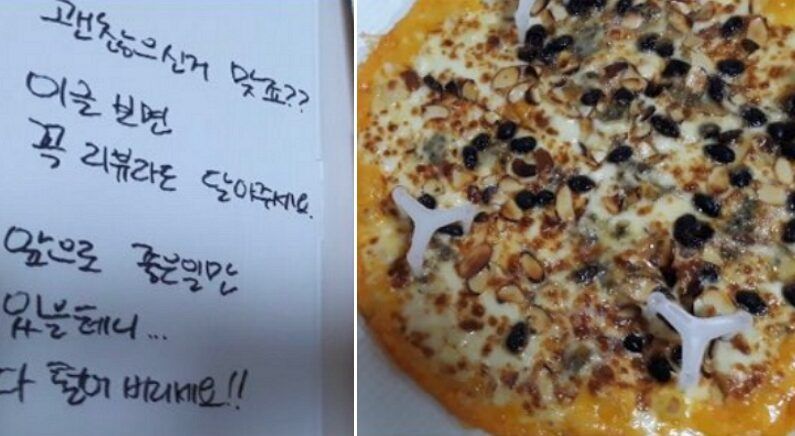 괜찮으신거 맞죠??
이글 보면
꼭 리뷰라도 달아주세요.
앞으로 좋은일만
있을테니...
다 털어 버리세요!!